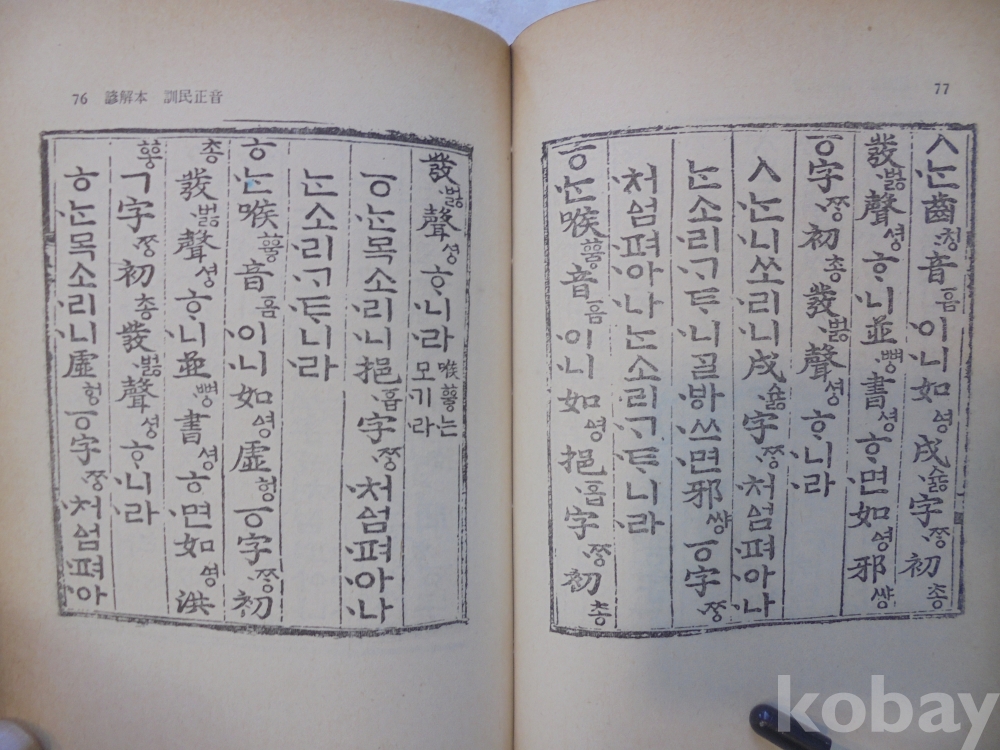 77
ㅅᄂᆞᆫ齒칭音ᅙᅳᆷ이니如ᅀᅧᆼ戌슗字ᄍᆞᆼ初총
發벓聲셩ᄒᆞ니並뼝書셩ᄒᆞ면如ᅀᅧᆼ邪썅
ㆆ字ᄍᆞᆼ初총發벓聲셩ᄒᆞ니라
ㅅᄂᆞᆫ니쏘리니戌슗字ᄍᆞᆼ처ᅀᅥᆷ펴아나
ᄂᆞᆫ소리ᄀᆞᄐᆞ니ᄀᆞᆯᄫᅡ쓰면邪썅ㆆ字ᄍᆞᆼ
처ᅀᅥᆷ펴아나ᄂᆞᆫ소리ᄀᆞᄐᆞ니라
ㆆᄂᆞᆫ喉ᅘᅮᇢ音ᅙᅳᆷ이니如ᅀᅧᆼ挹ᅙᅳᆸ字ᄍᆞᆼ初총
76 諺解本 訓民正音
發벓聲셩ᄒᆞ니라喉ᅘᅮᇢ는모기라
ㆆᄂᆞᆫ목소리니挹ᅙᅳᆸ字ᄍᆞᆼ처ᅀᅥᆷ펴아나
ᄂᆞᆫ소리ᄀᆞᄐᆞ니라
ㅎᄂᆞᆫ喉ᅘᅮᇢ音ᅙᅳᆷ이니如ᅀᅧᆼ虛헝ㆆ字ᄍᆞᆼ初
총發벓聲셩ᄒᆞ니並뼝書셩ᄒᆞ면如ᅀᅧᆼ洪
ᅘᅩᇰㄱ字ᄍᆞᆼ初총發벓聲셩ᄒᆞ니라
ㅎᄂᆞᆫ목소리니虛헝ㆆ字ᄍᆞᆼ처ᅀᅥᆷ펴아
kobay